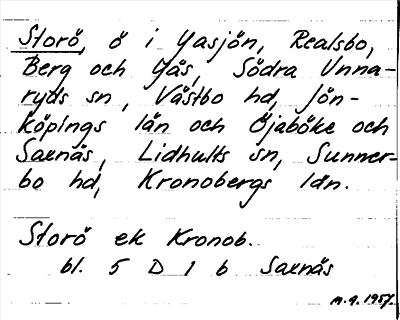 Storö, ö i Yasjön, Realsbo,
Berg och Yås, Södra Unna-
ryds sn, Våstbo hd, Jön-
köpings län och Öjaböke och
Saxnäs, Lidhults sn, Sunner-
bo hd, Kronobergs län.
Storö ek Kronob.
bl. 5 D 1 b Saxnäs
M.A. 1957.